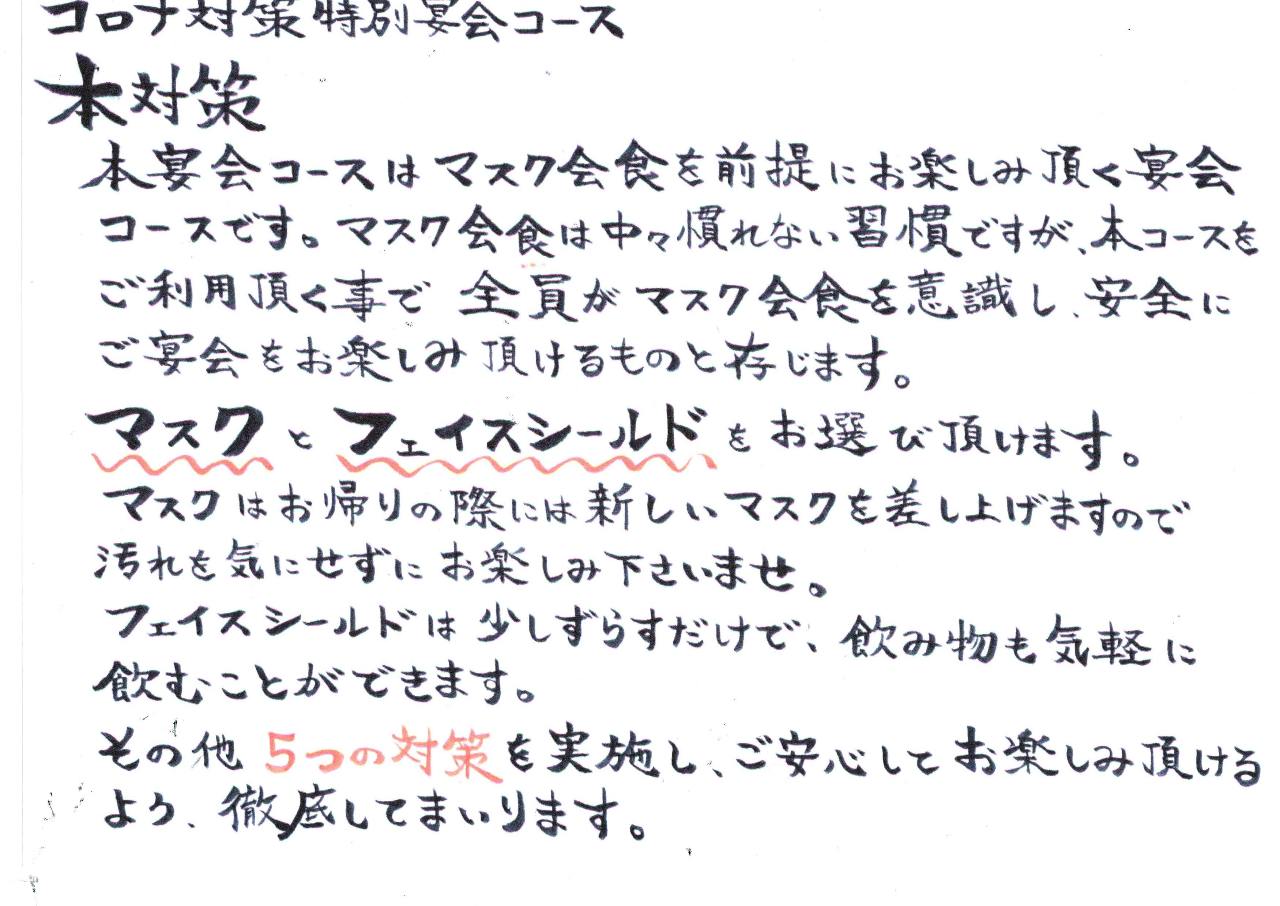 コロナ対策特別宴会コース
本対策
本宴会コースはマスク会食を前提にお楽しみ頂く宴会
コースです。マスク会食は中々慣れない習慣ですが、本コースを
ご利用頂く事で 全員がマスク会食を意識し、安全に
ご宴会をお楽しみ頂けるものと存じます。
マスクとフェイスシールドをお選び頂けます。
マスクはお帰りの際には新しいマスクを差し上げますので
汚れを気にせずにお楽しみ下さいませ。
フェイスシールドは少しずらすだけで、飲み物も気軽に
飲むことができます。
その他 5つの対策を実施し、ご安心してお楽しみ頂ける
よう、徹底してまいります。